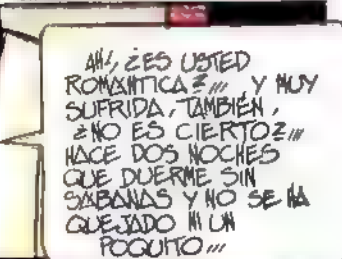 AH!, ¿ES USTED
ROMÁNTICA?... Y MUY
SUFRIDA, TAMBIÉN,
¿NO ES CIERTO?...
HACE DOS NOCHES
QUE DUERME SIN
SÁBANAS Y NO SE HA
QUEJADO NI UN
POQUITO...